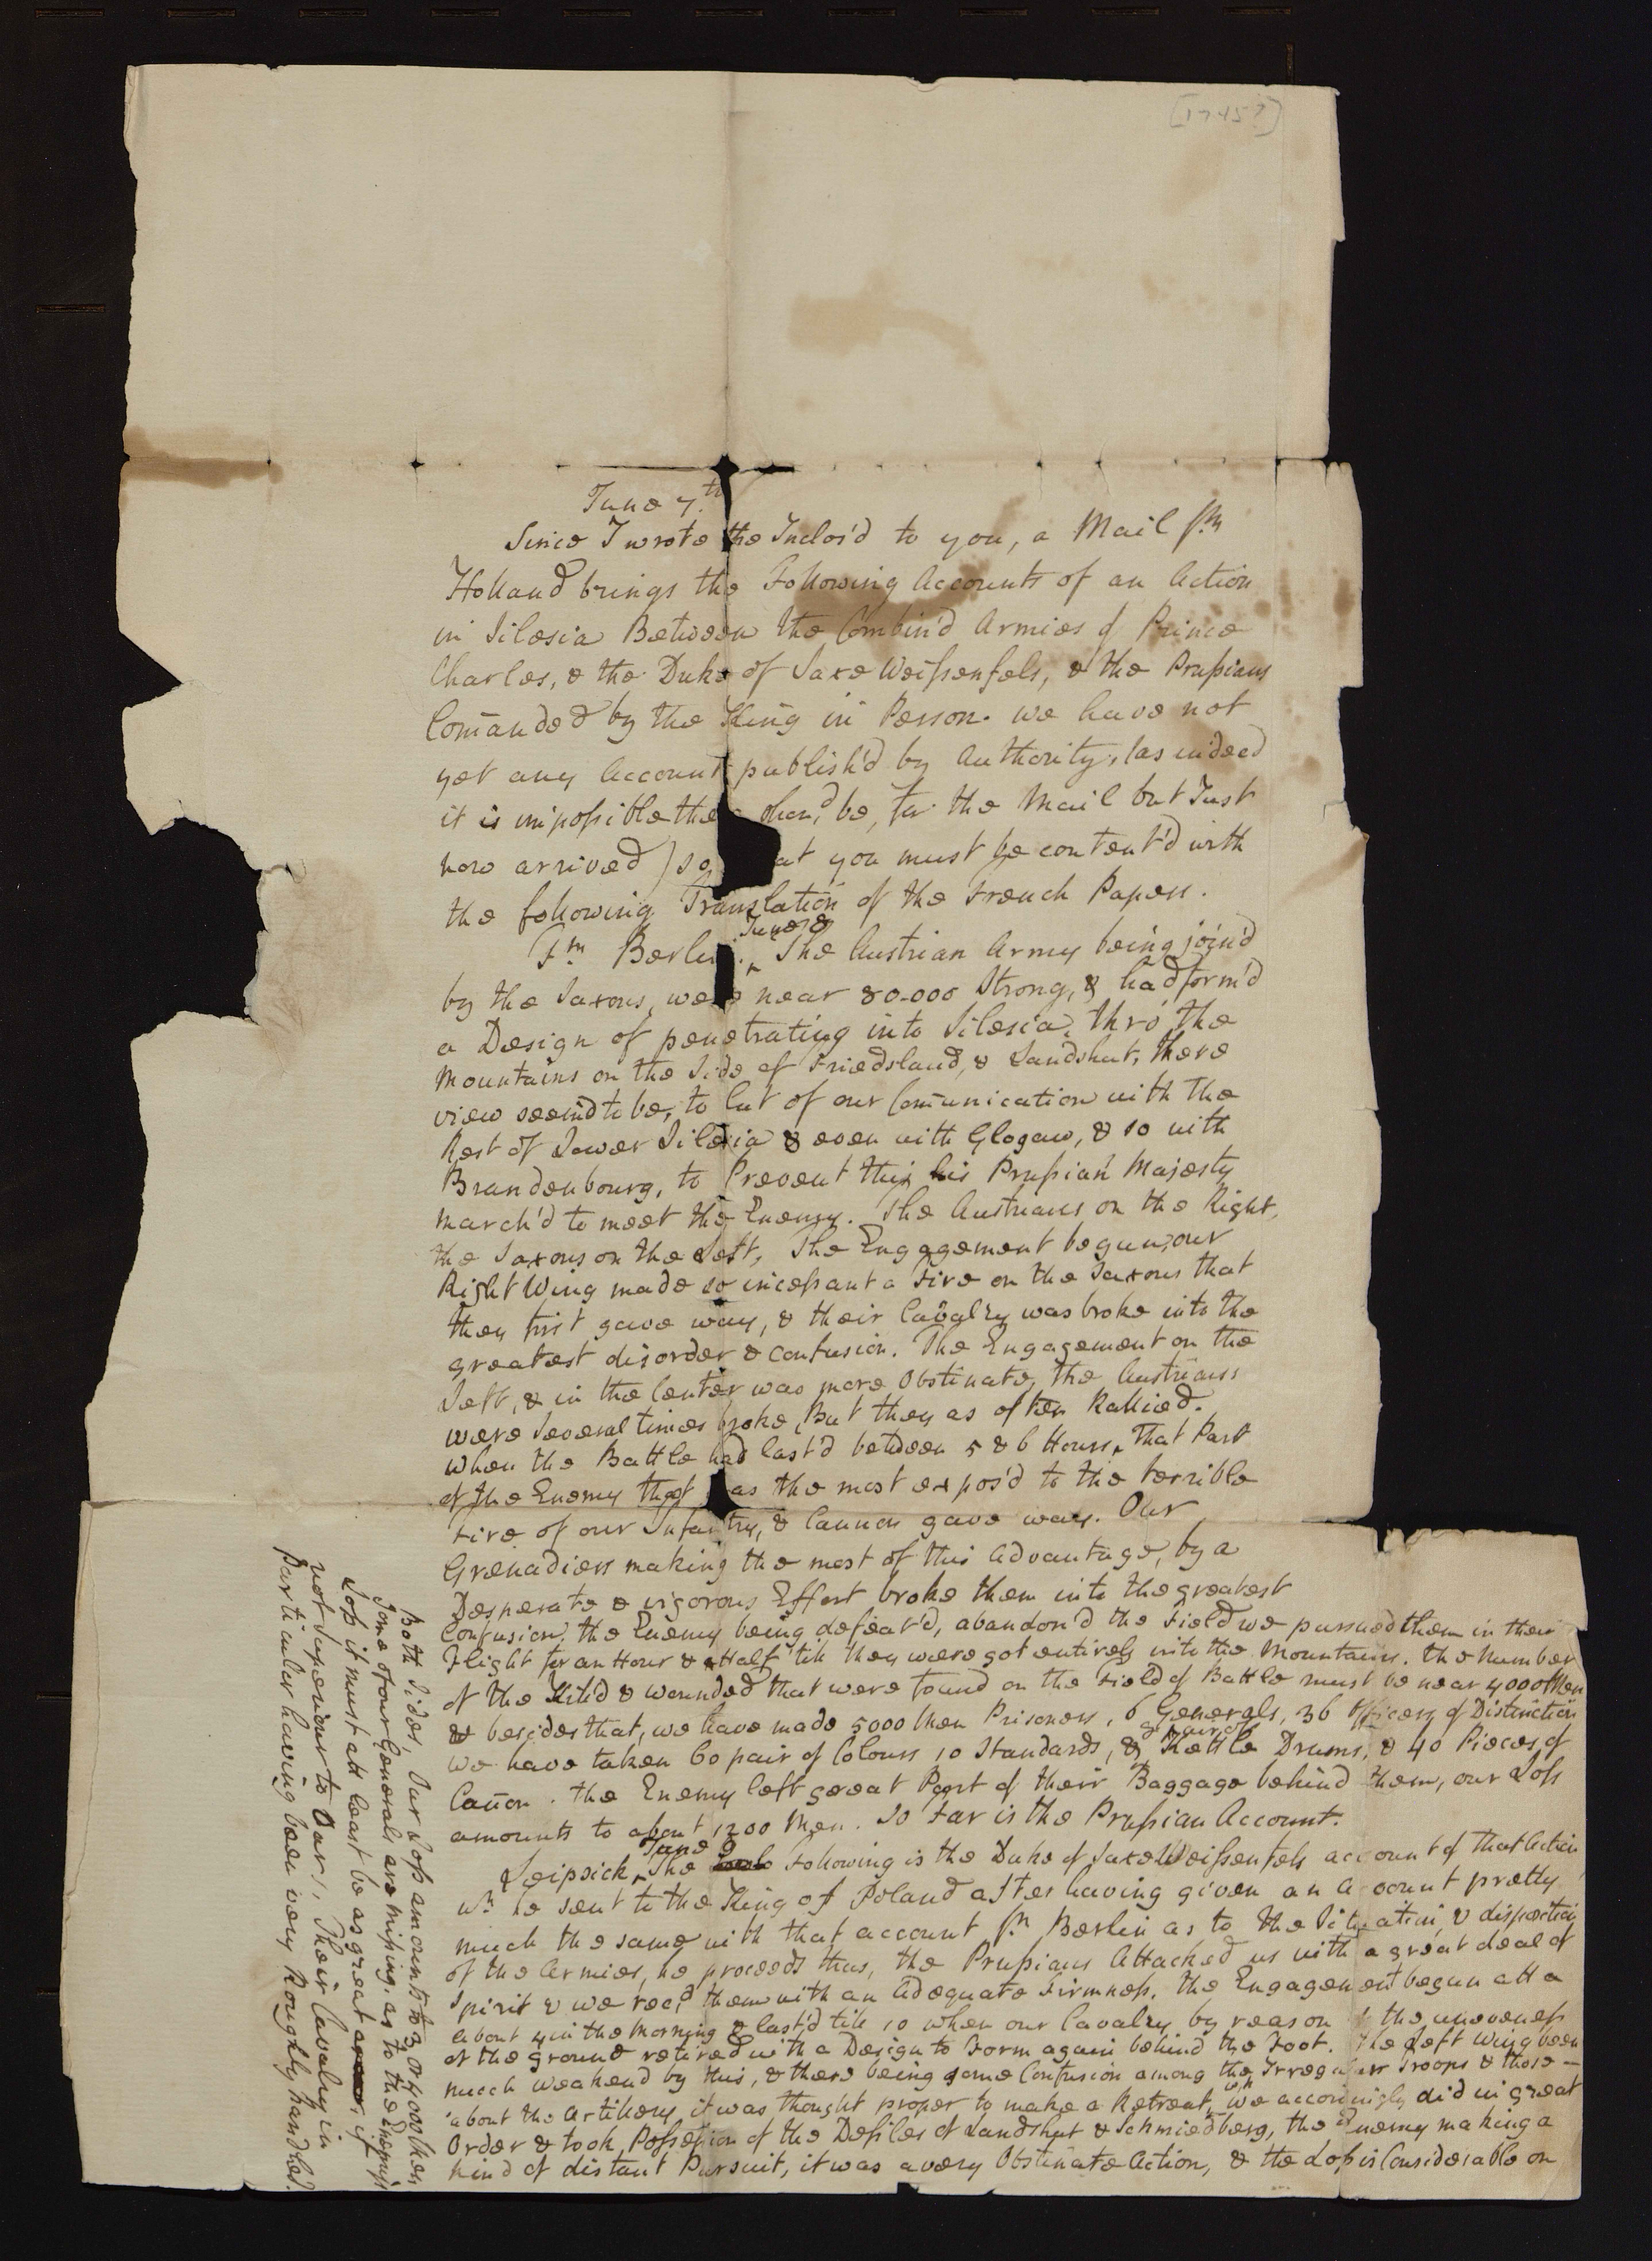 [1745?]
June 7.th
Since I wrote the Inclos'd to you, a Mail fm
Holland brings the Following Accounts of an Action
in Silesia Between the Combin'd Armies of Prince
Charles, & the Duke of Saxe Weissenfels, & the Prussians
Comānded by the King in Person. we have not
yet any Account publish'd by Authority, (as indeed
it is impossible the shou'd be, for the Mail but Just
now arrived) so at you must be content'd with
the following Translation of the French Papers.
Fm Berlin. June 8 The Austrian Army being join'd
by the Saxons, were near 80.000 Strong, & had form'd
a Design of penetrating into Silesia, thro' the
Mountains on the Side of Friedsland, & Landshut, there
view seem'd to be, to Cut of our Comūnication with the
Rest of Lower Silesia & even with Glogaw, & so with
Brandenbourg, to Prevent this his Prussian Majesty
March'd to meet the Enemy. The Austrians on the Right,
the Saxons on the Left, The Engagement begun, our
Right Wing made so incessant a Fire on the Saxons that
they first gave way, & their Cavalry was broke into the
greatest disorder & confusion. The Engagement on the
Left, & in the Center was more Obstinate, the Austrians
were Several times broke, But they as often Rallied.
When the Battle had last'd between 5 & 6 Hours, That Part
of the Enemy that as the most expos'd to the terrible
Fire of our Infantry, & Cannon gave way. Our
Grenadiers making the most of this Advantage, by a
Desperate & vigorous Effort broke them into the greatest
Confusion, the Enemy being defeat'd, abandon'd the Field we pursued them in their
Flight for an Hour & a Half till they were got entirely into the Mountains. the Number
of the Kill'd & wounded that were found on the Field of Battle must be near 4000 Men
& besides that, we have made 5000 Men Prisoners, 6 Generals, 36 Officers of Distinction
we have taken 60 pair of Colours 10 Standards, & 8 pair of Kettle Drums, & 40 Pieces of
Cañon. the Enemy left great Part of their Baggage behind them, our Loss
amounts to about 1200 Men. So Far is the Prussian Account.
Leipsick, June 9 The Following is the Duke of Saxe Weissenfels account of that Action
wch he sent to the King of Poland after having given an account pretty
much the same with that account fm Berlin as to the Situation, & disposition
of the Armies, he proceeds thus, the Prussians Attacked us with a great deal of
Spirit & we rec'd them with an Adequate Firmness. the Engagement begun att a
about 4 in the Morning & last'd till 10 when our Cavalry by reason the unevenness
of the ground retired with a Design to Form again behind the Foot. the Left Wing been
much weakend by this, & there being some Confusion among the Irregular Troops & those
about the Artillery it was thought proper to make a Retreat, wch we accordingly did in great
Order & took Possession of the Defiles of Landshut & Schmiedberg, the Enemy making a
kind of distant Pursuit, it was a very Obstinate Action, & the Loss is Considerable on
Both Sides, Our Loss amounts to 3 or 4000 Men
Some of our Generals are missing. as to the Enemys
Loss it must att least be as great if
not Superiour to Ours, Their Cavalry in
particular having been very Roughly handled.